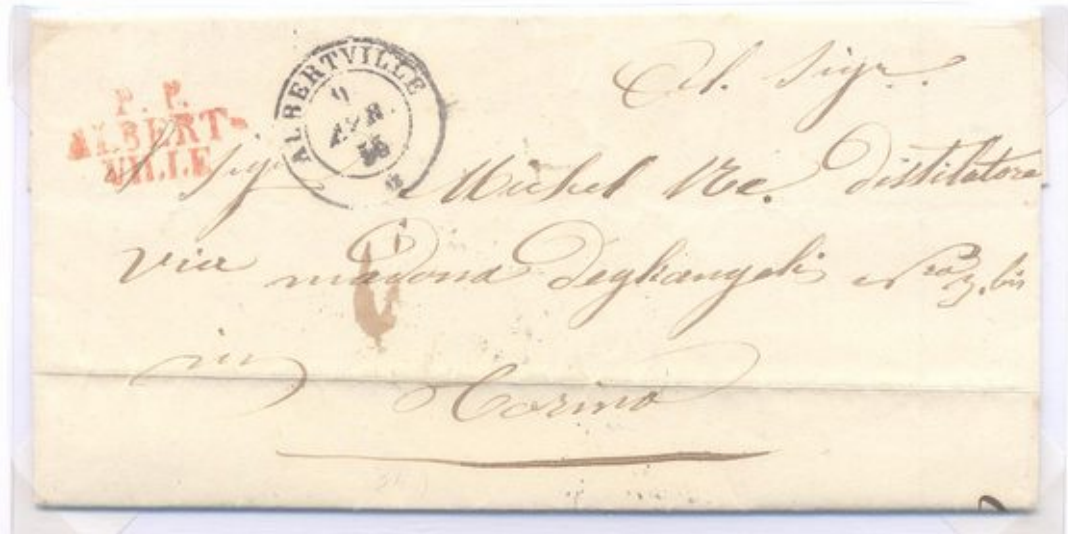 P. P.
ALBERT-
VILLE
ALBERTVILLE
9
AVR.
55
Al. Sigr.
Sigr Michel Distilatore
via madona Degliangeli Nro 3. bis
in
Torino